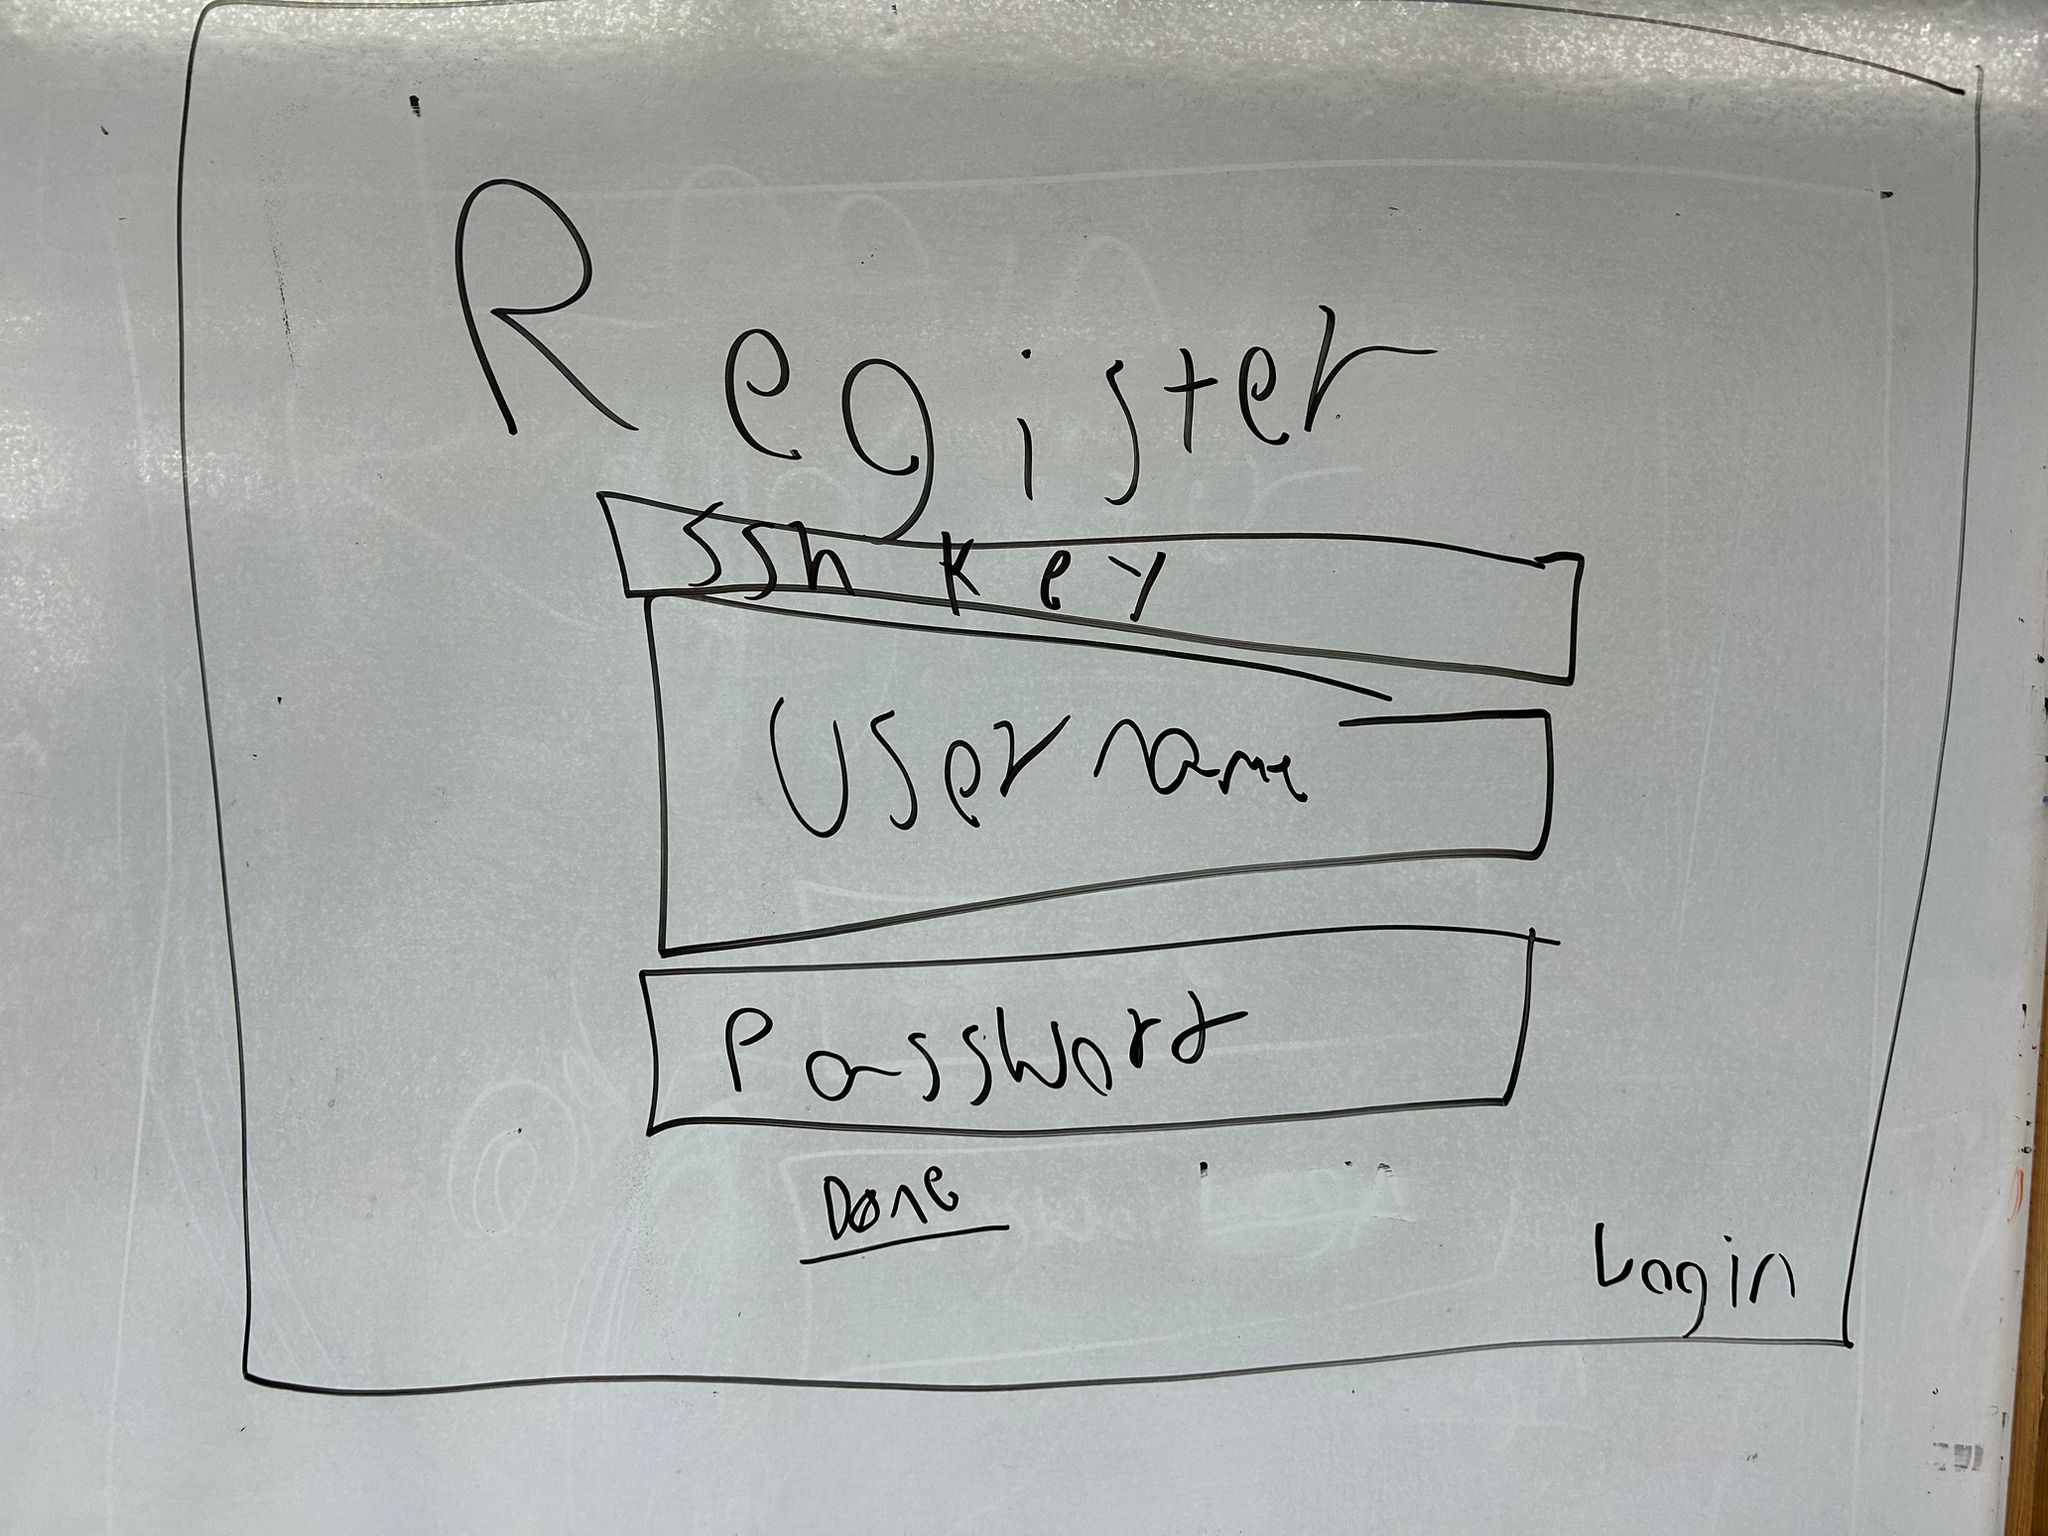 Register
SSh key
Username
Password
Done
Login